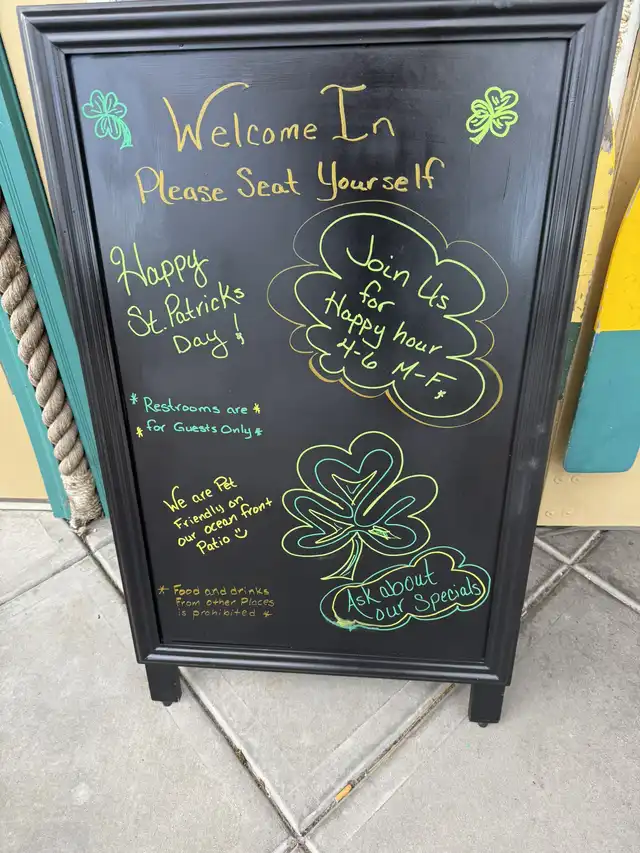 Welcome In
Please Seat Yourself
Happy
St. Patricks
Day!
Join Us
for
Happy hour
4-6 M-F
* Restrooms are *
* for Guests Only *
We are Pet
Friendly on
our ocean front
Patio
Ask about
our Specials
* Food and drinks
From other Places
is prohibited *